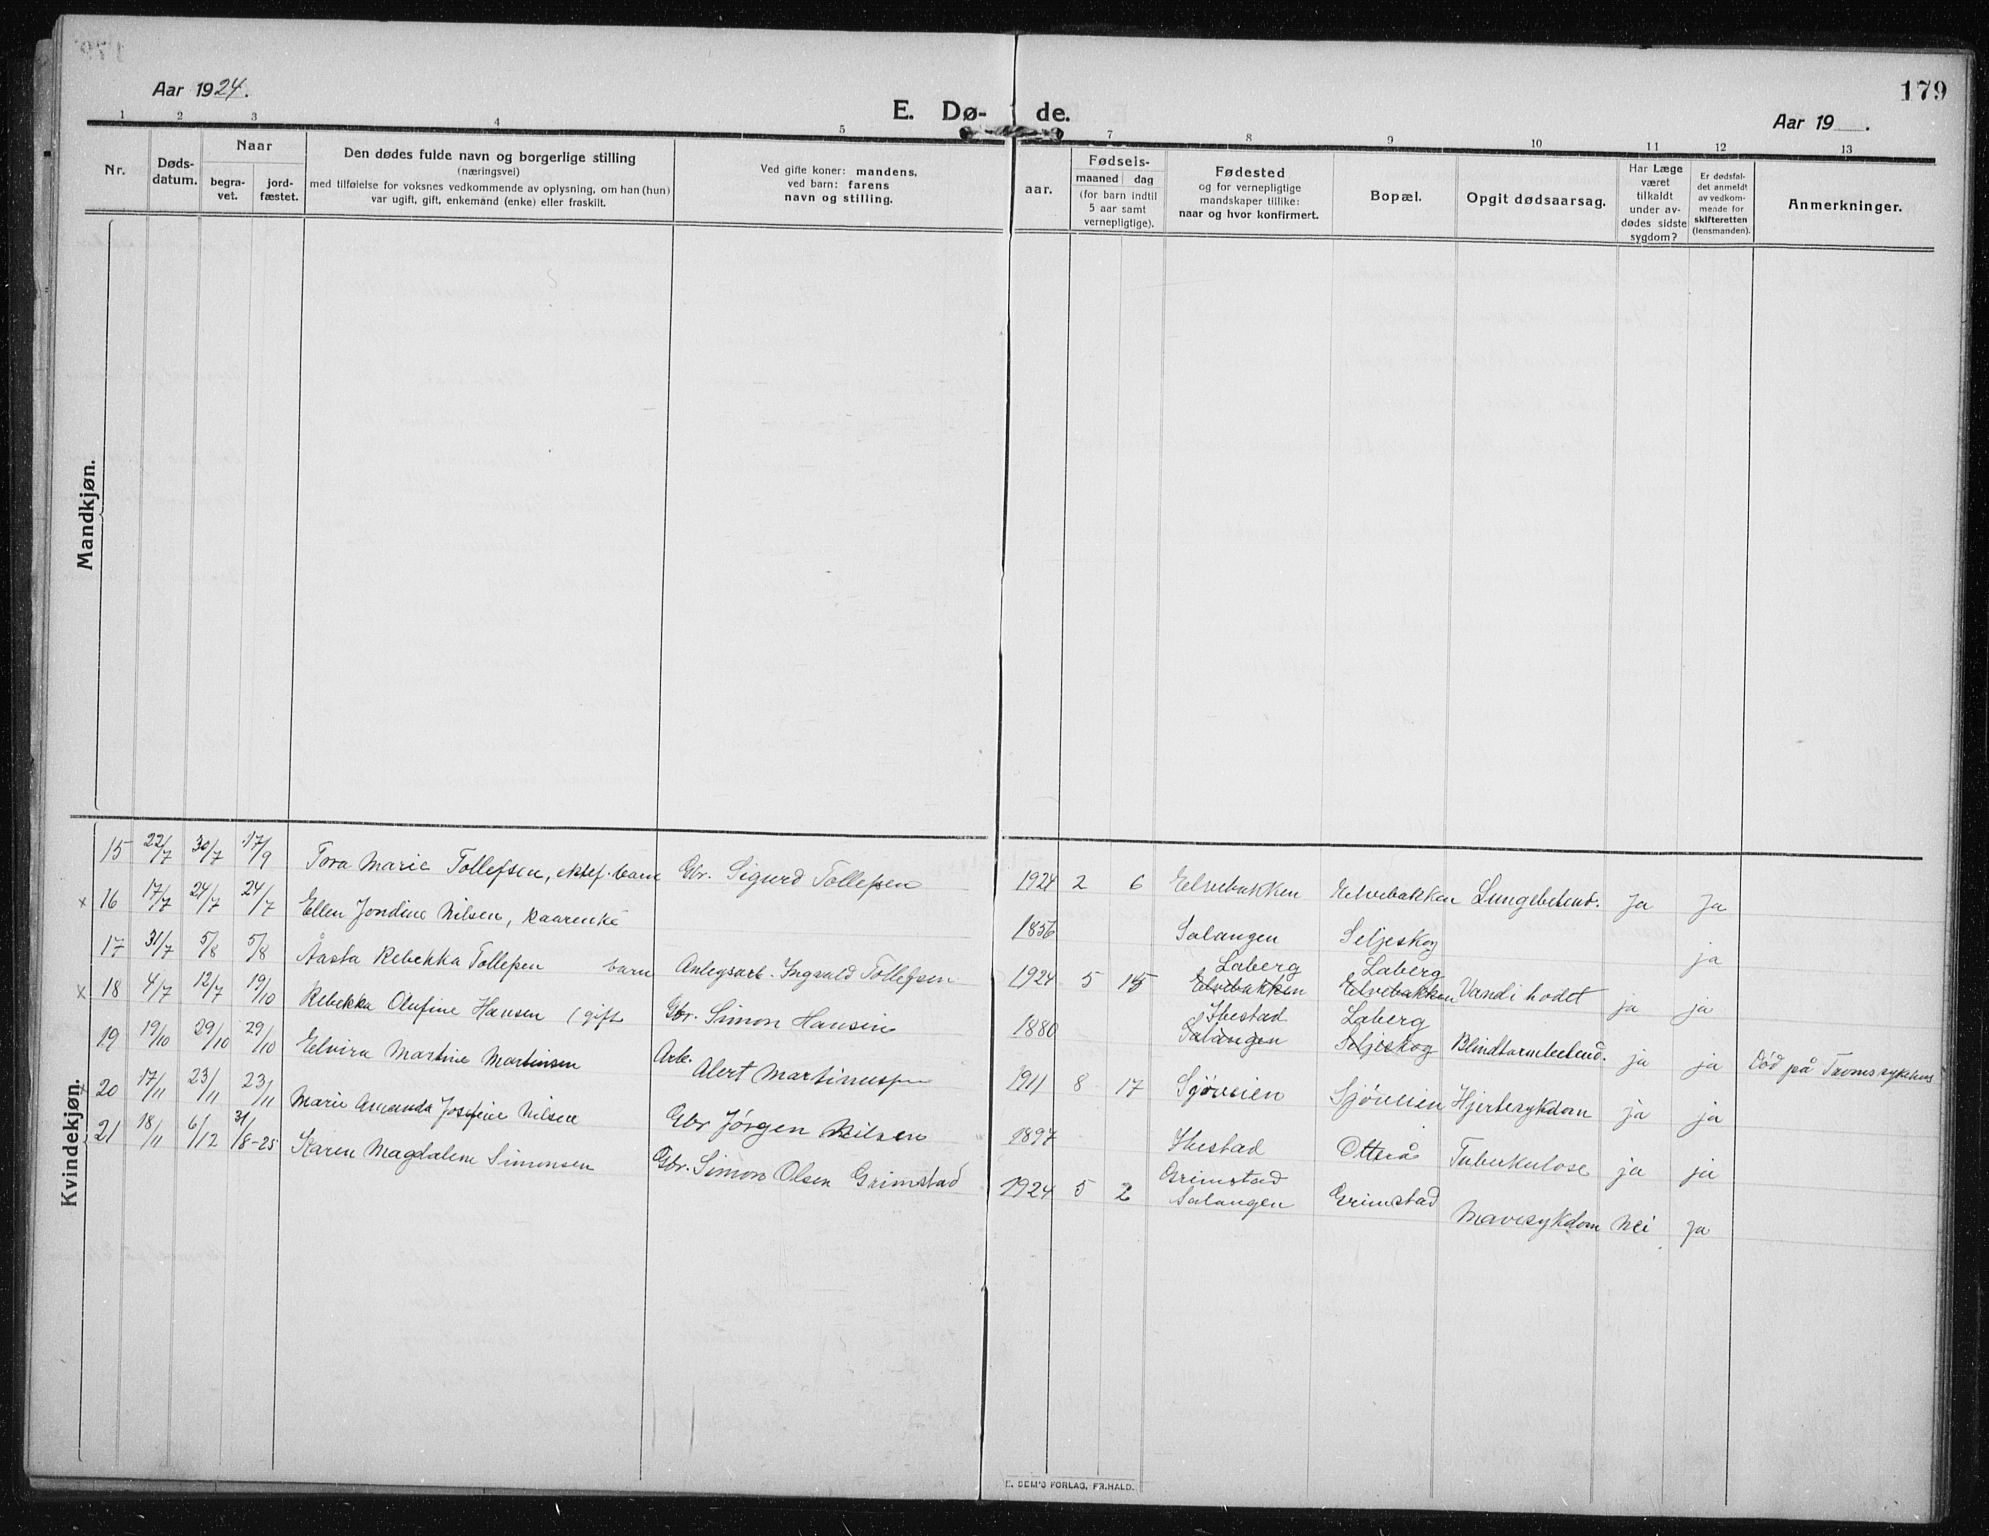 179
Aar 1924.
E. Dø- de.
Aar 19 .
1 2 3 4 5 7 8 9 10 11 12 13
Nr.
Døds-
datum.
Naar
begra-
vet.
jord-
fæstet.
Den dødes fulde navn og borgerlige stilling
(næringsvei)
med tilføielse for voksnes vedkommende av oplysning, om han (hun)
var ugift, gift, enkemand (enke) eller fraskilt.
Ved gifte koner: mandens,
ved barn: farens
navn og stilling.
aar.
Fødsels-
maaned dag
(for barn indtil
5 aar samt
vernepligtige).
Fødested
og for vernepligtige
mandskaper tillike:
naar og hvor konfirmert.
Bopæl.
Opgit dødsaarsag.
Har Læge
været
tilkaldt
under av-
dødes sidste
sygdom?
Er dødsfal-
det anmeldt
av vedkom-
mende for
skifteretten
(lensmanden).
Anmerkninger.
Mandkjøn.
Kvindekjøn.
15 22/7 30/7 17/9 Tora Marie Tollefsen, ektef. barn Gbr. Sigurd Tollefsen 1924 2 6 Elvebakken Elvebakken Lungebetend. Ja Ja
x 16 17/7 24/7 24/7 Ellen Jondine Nilsen, kaarenke 1856 Salangen Seljeskog ja
17 31/7 5/8 5/8 Åasta Rebekka Tollefsen barn Anlegsarb. Ingvald Tollefsen 1924 5 15 Laberg Laberg
Elvebakken Elvebakken Vand i hodet ja ja
x 18 4/7 12/7 19/10 Rebekka Olufine Hansen (gift Gbr. Simon Hansen 1880 Ibestad Laberg
Salangen Seljeskog Blindtarmbetend. ja ja Død på Troms sykehus
19 19/10 29/10 29/10 Elvira Martine Martinsen Arb. Alert Martinussen 1911 8 17 Sjøveien Sjøveien Hjertesykdom ja ja
x 20 17/11 23/11 23/11 Marie Amanda Josefine Nilsen Gbr Jørgen Nilsen 1897 Ibestad Otterå Tuberkulose ja ja
21 18/11 6/12 31/8-25 Karen Magdalene Simonsen Gbr. Simon Olsen Grimstad 1924 5 2 Grimstad
Salangen Grimstad Mavesykdom Nei Ja
E. SEM'S FORLAG, FR.HALD.